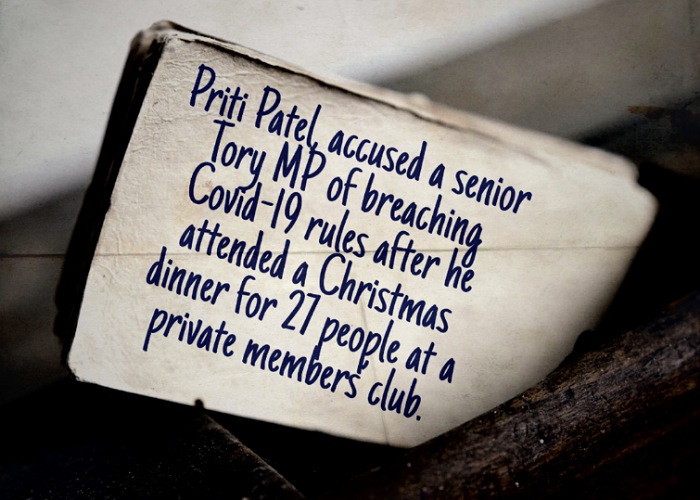 Priti Patel, accused a senior
Tory MP of breaching
Covid-19 rules after he
attended a Christmas
dinner for 27 people at a
private members' club.